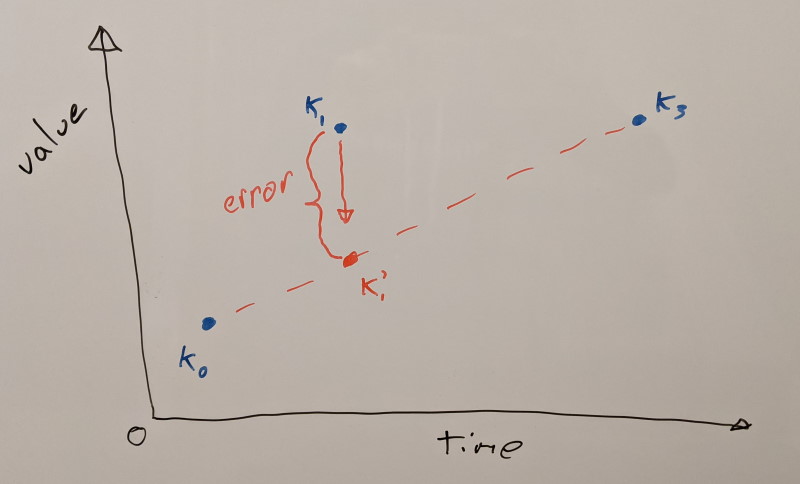 value
K₁
K₃
error
K₁'
K₀
0
time